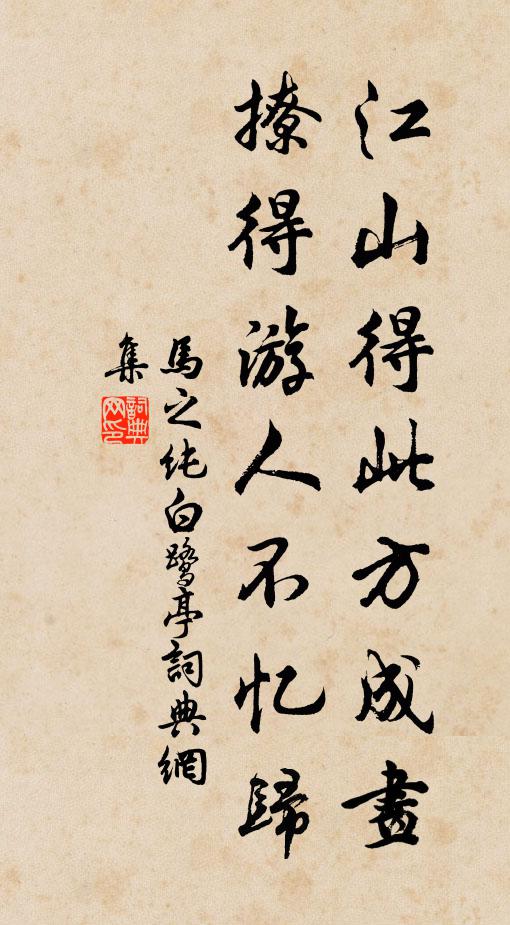 江山得此方成畫
撩得游人不忆歸
馬之純白鷺亭詞典網
集
詞典
网印